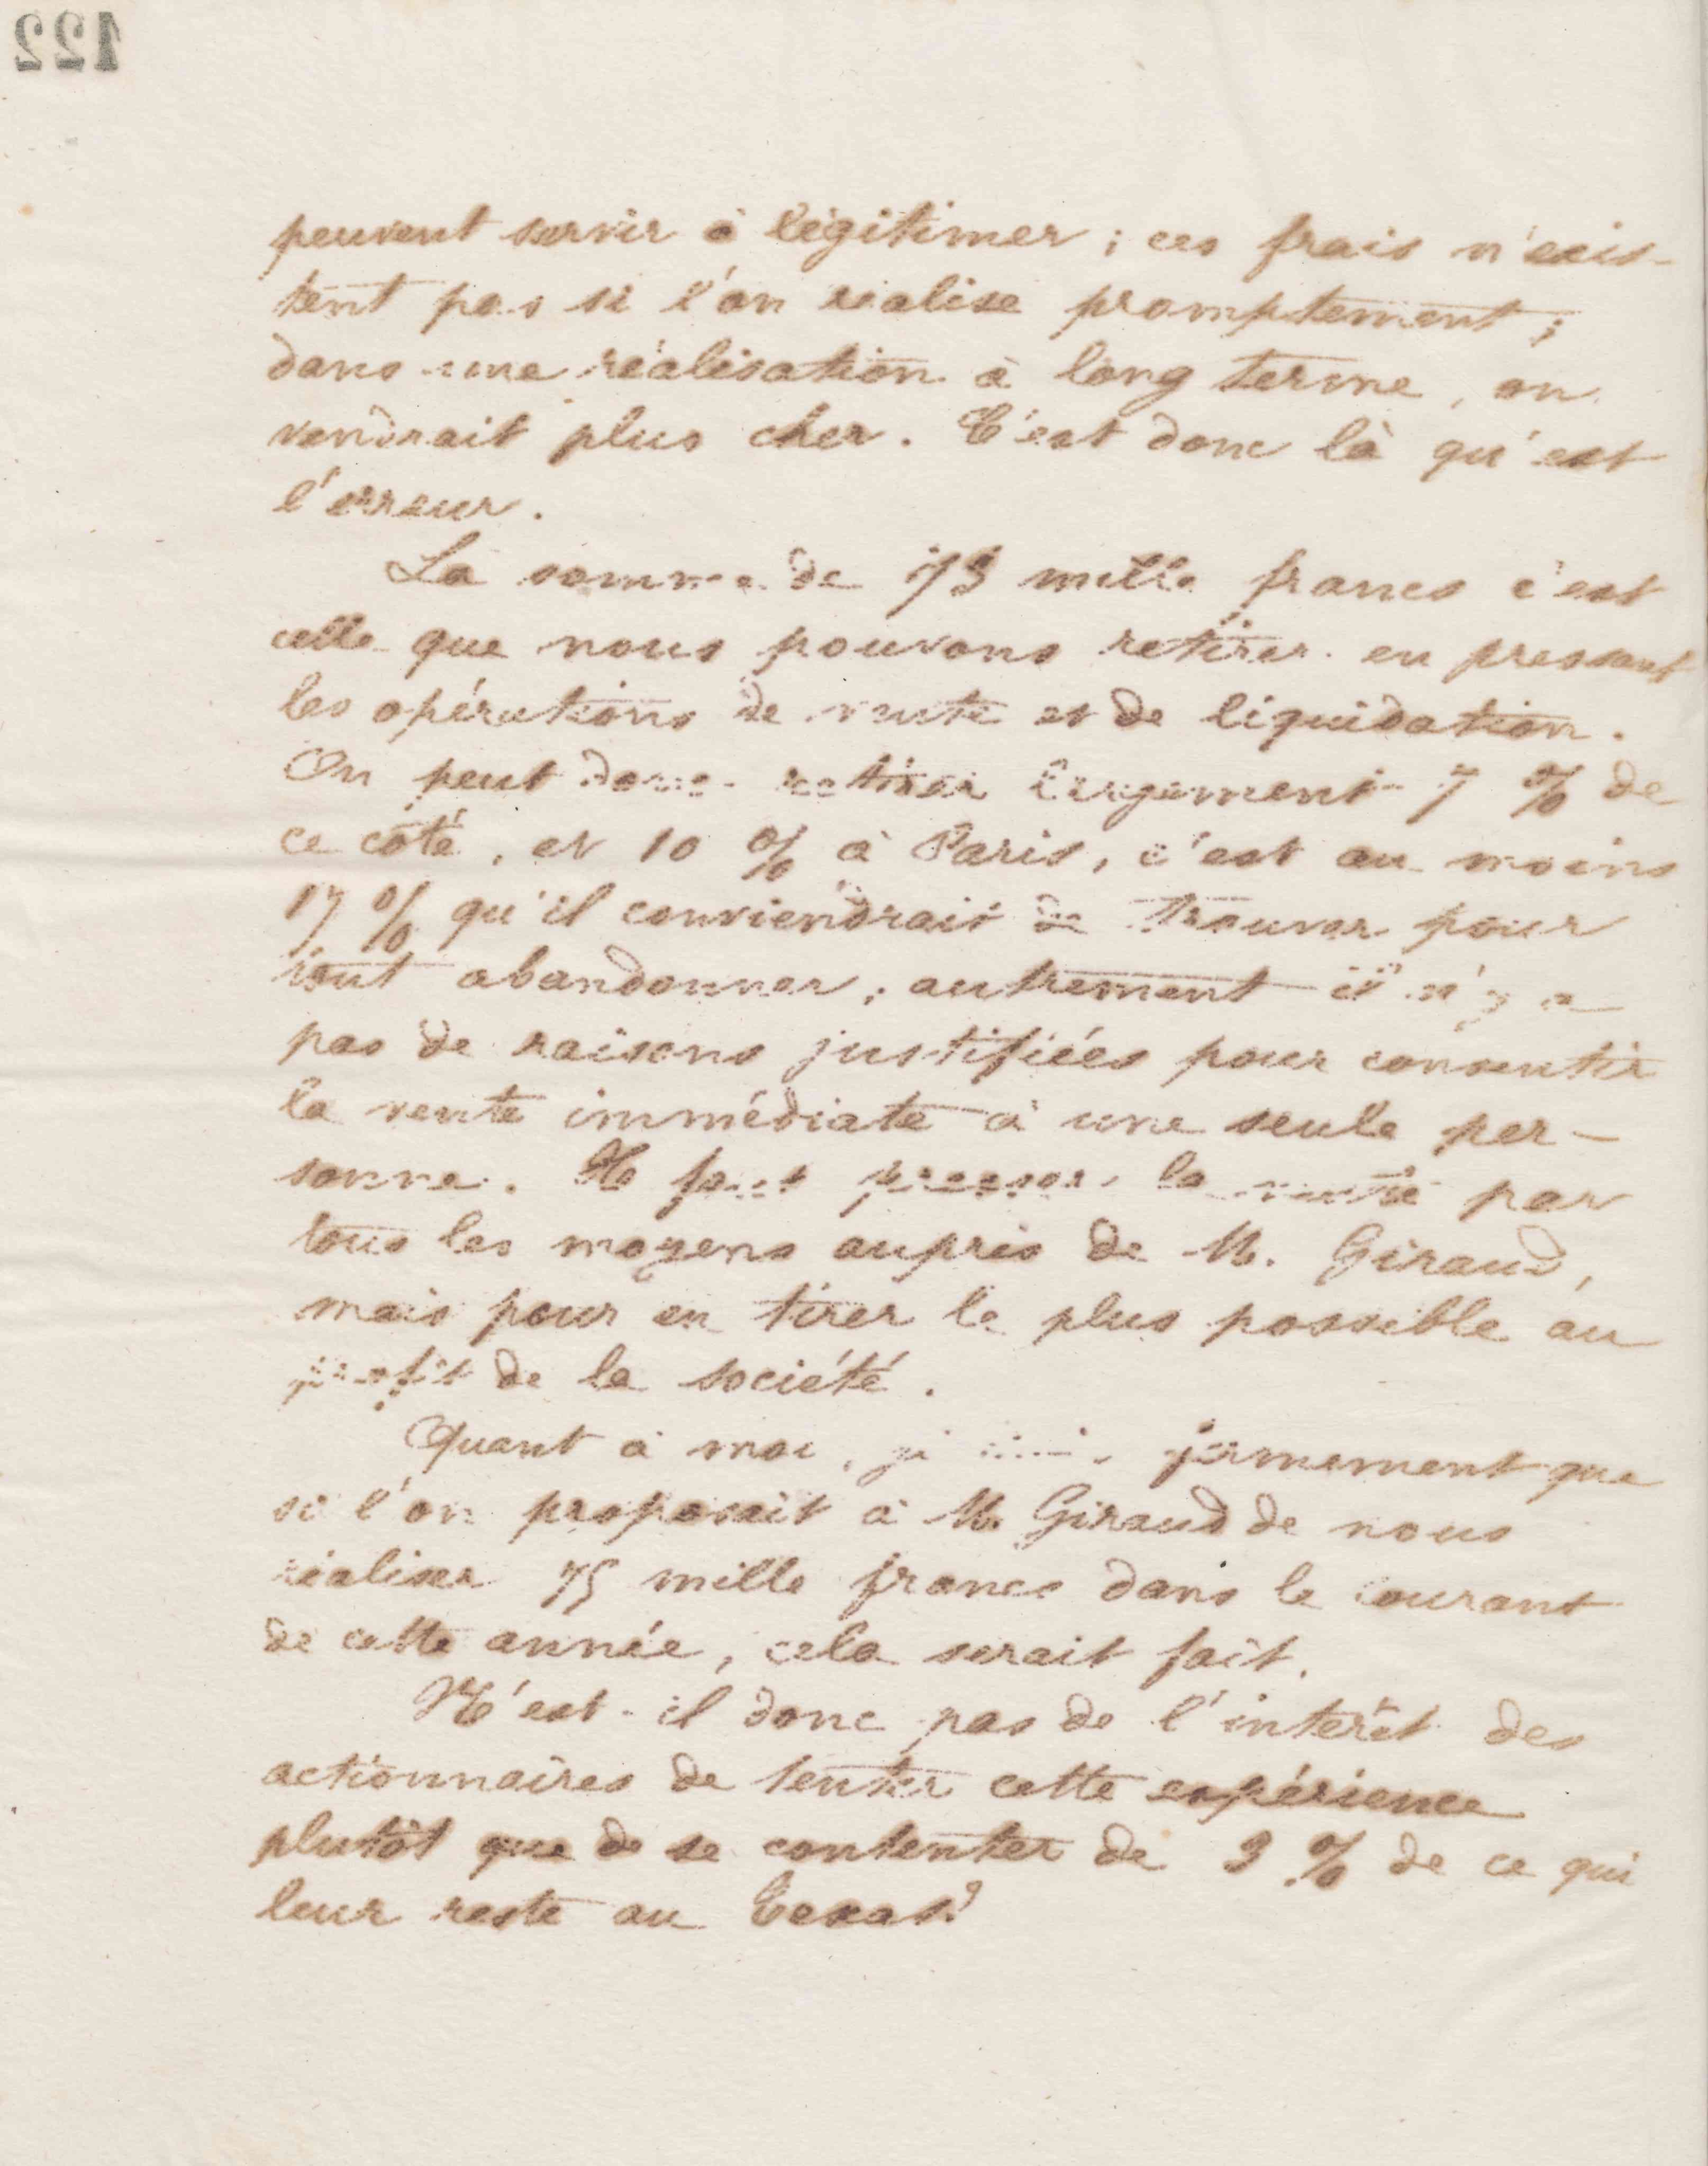 122
peuvent servir à légitimer ; ces frais n'exis-
tent pas si l'on réalise promptement ;
dans une réalisation à long terme, on
vendrait plus cher. C'est donc là qu'est
l'erreur.
La somme de 75 mille francs c'est
celle que nous pouvons retirer en pressant
les opérations de vente et de liquidation.
On peut donc retirer largement 7 % de
ce côté, et 10 % à Paris, c'est au moins
17 % qu'il conviendrait de trouver pour
tout abandonner ; autrement il n'y a
pas de raisons justifiées pour consentir
la vente immédiate à une seule per-
sonne. Il faut presser la vente par
tous les moyens auprès de M. Giraud,
mais pour en tirer le plus possible au
profit de la société.
Quant à moi, je fermement que
si l'on proposait à M. Giraud de nous
réaliser 75 mille francs dans le courant
de cette année, cela serait fait.
N'est-il donc pas de l'intérêt des
actionnaires de tenter cette expérience
plutôt que de se contenter de 3 % de ce qui
leur reste au Texas ?